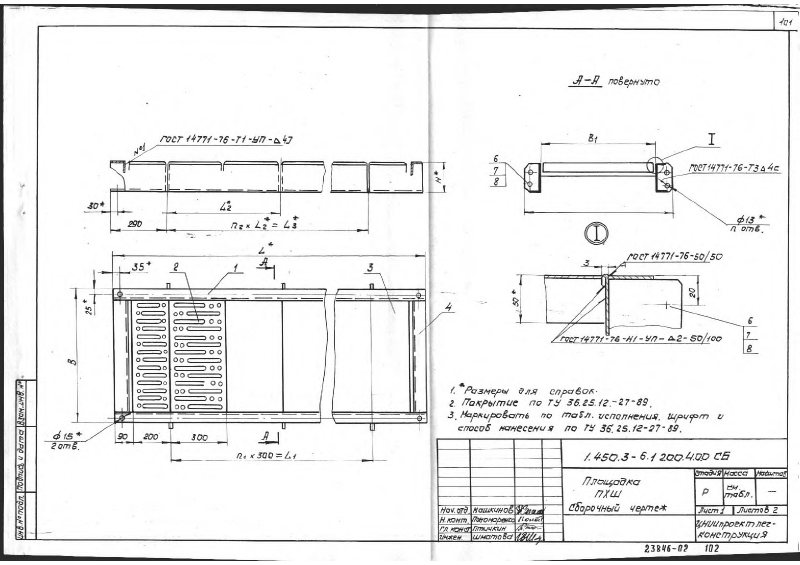 101
А-А повернуто
ГОСТ 14771-76-Т1-УП-Δ4
№1
30*
290
L2*
n2 x L2* = L3*
H*
B1
I
6
7
8
ГОСТ 14771-76-Т3 Δ4
ф13*
n отв.
L*
А
35*
2
1
3
4
25*
В
ф15*
2 отв.
90
200
300
А
n1 x 300 = L1
I
3
ГОСТ 14771-76-
50/50
50*
20
ГОСТ 14771-76-Н1-УП-Δ2-50/100
6
7
8
1.* Размеры для справок.
2. Покрытие по ТУ 36.25.12-27-89.
3. Маркировать по табл. исполнения, шрифт и
способ нанесения по ТУ 36.25.12-27-89.
1.450.3-6.1 200.4.00 СБ
Площадка
ПХШ
Сборочный чертеж
Стадия Масса Масштаб
Р см. табл. —
Лист 1 Листов 2
ЦНИИпроектлег-
конструкция
Нач. отд. Кашкинов
Н. конт. Пономаренко
Гл. конст. Птичкин
Инжен. Шматова
Инв. № подл. Подпись и дата Взам. инв. №
23846-02 102